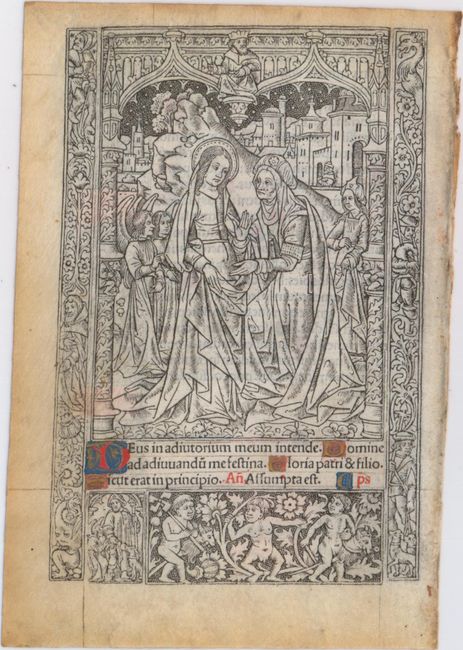 DEus in adiutorium meum intende. Domine
ad adiuuandū me festina. Gloria patri & filio.
Sicut erat in principio. Añ Assumpta est. ps